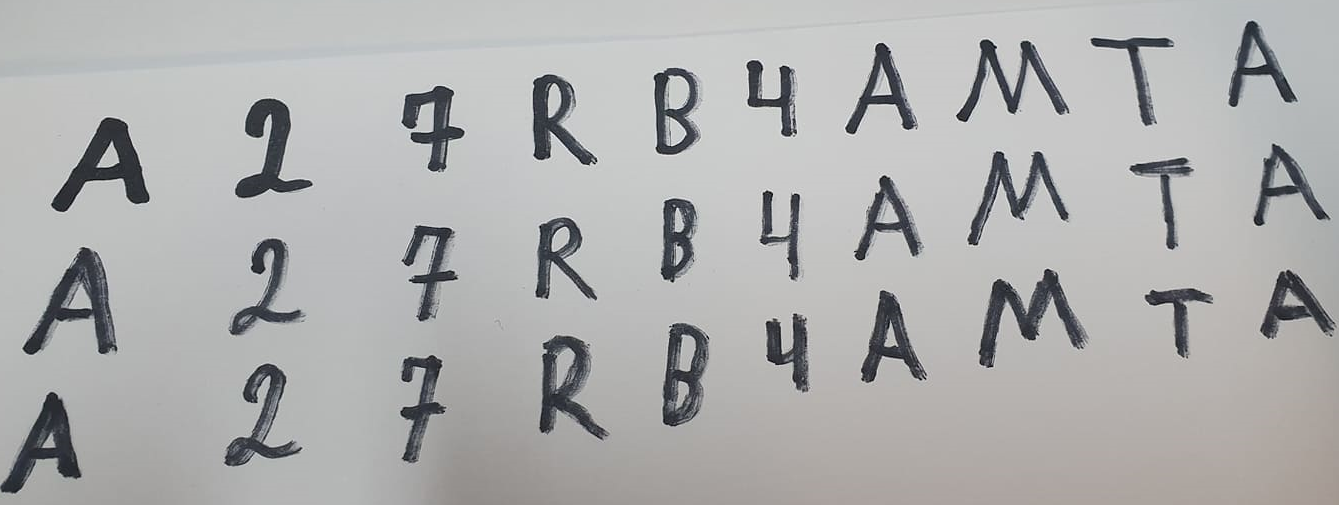 A 2 7 R B 4 A M T A
A 2 7 R B 4 A M T A
A 2 7 R B 4 A M T A